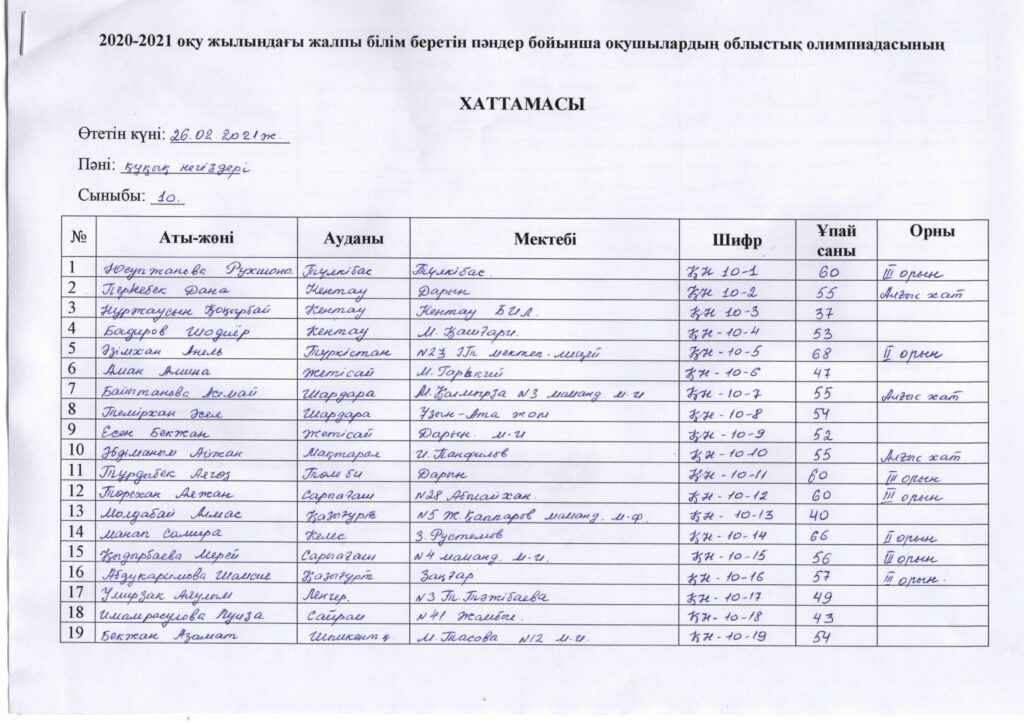 2020-2021 оқу жылындағы жалпы білім беретін пәндер бойынша оқушылардың облыстық олимпиадасының
ХАТТАМАСЫ
Өтетін күні: 26.02.2021ж.
Пәні: құқық негіздері
Сыныбы: 10.
№ Аты-жөні Ауданы Мектебі Шифр Ұпай саны Орны
1 Юсупжанова Рухшона Түлкібас Түлкібас. ҚН 10-1 60 III орын
2 Пернебек Дана Кентау Дарын ҚН 10-2 55 Алғыс хат
3 Нұртаусын Қоңырбай Кентау Кентау БИЛ. ҚН 10-3 37
4 Бадиров Шодиёр Кентау М. Қашғари. ҚН-10-4 53
5 Әзімхан Анель Түркістан №23 IT мектеп-лицей ҚН-10-5 68 II орын
6 Аман Амина Жетісай М. Горький ҚН-10-6 47
7 Байтанова Шардара №3 маманд. м-и ҚН-10-7 55 Алғыс хат
8 Темірхан Әсел Шардара Ұзын-Ата жом ҚН-10-8 54
9 Есен Бекжан Жетісай Дарын. м-и ҚН-10-9 52
10 Әбдіманым Айжан Мақтарал И. Панфилов ҚН-10-10 55 Алғыс хат
11 Тұрдыбек Төле би Дарын ҚН-10-11 60 III орын
12 Төрехан Аяжан Сарыағаш №28 Абылайхан. ҚН-10-12 60 III орын
13 Молдабай Алмас Қазығұрт №5 Ж. Қаппаров маманд. м-ф. ҚН-10-13 40
14 Манап Самира Келес З. Рустемов ҚН-10-14 66 II орын
15 Қыдырбаева Мерей Сарыағаш №4 маманд. м-и. ҚН-10-15 56 III орын
16 Абдукаримова Қазығұрт Заңғар ҚН-10-16 57 III орын.
17 Умирзак Аяулым Ленгер. №3 Т. Тәжібаева ҚН-10-17 49
18 Имамрасулова Луиза Сайрам №41 Жамбыл. ҚН-10-18 43
19 Бекжан Азамат Шымкент қ М. Тасова №12 м-и. ҚН-10-19 54